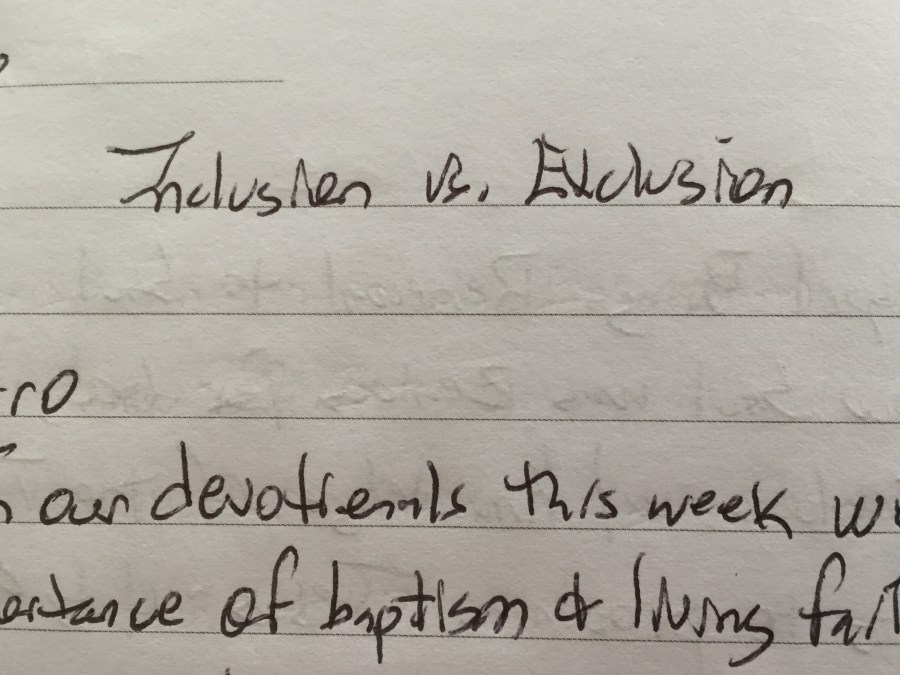 Inclusion vs. Exclusion
ro
our devotionals this week wi
ortance of baptism & living fait